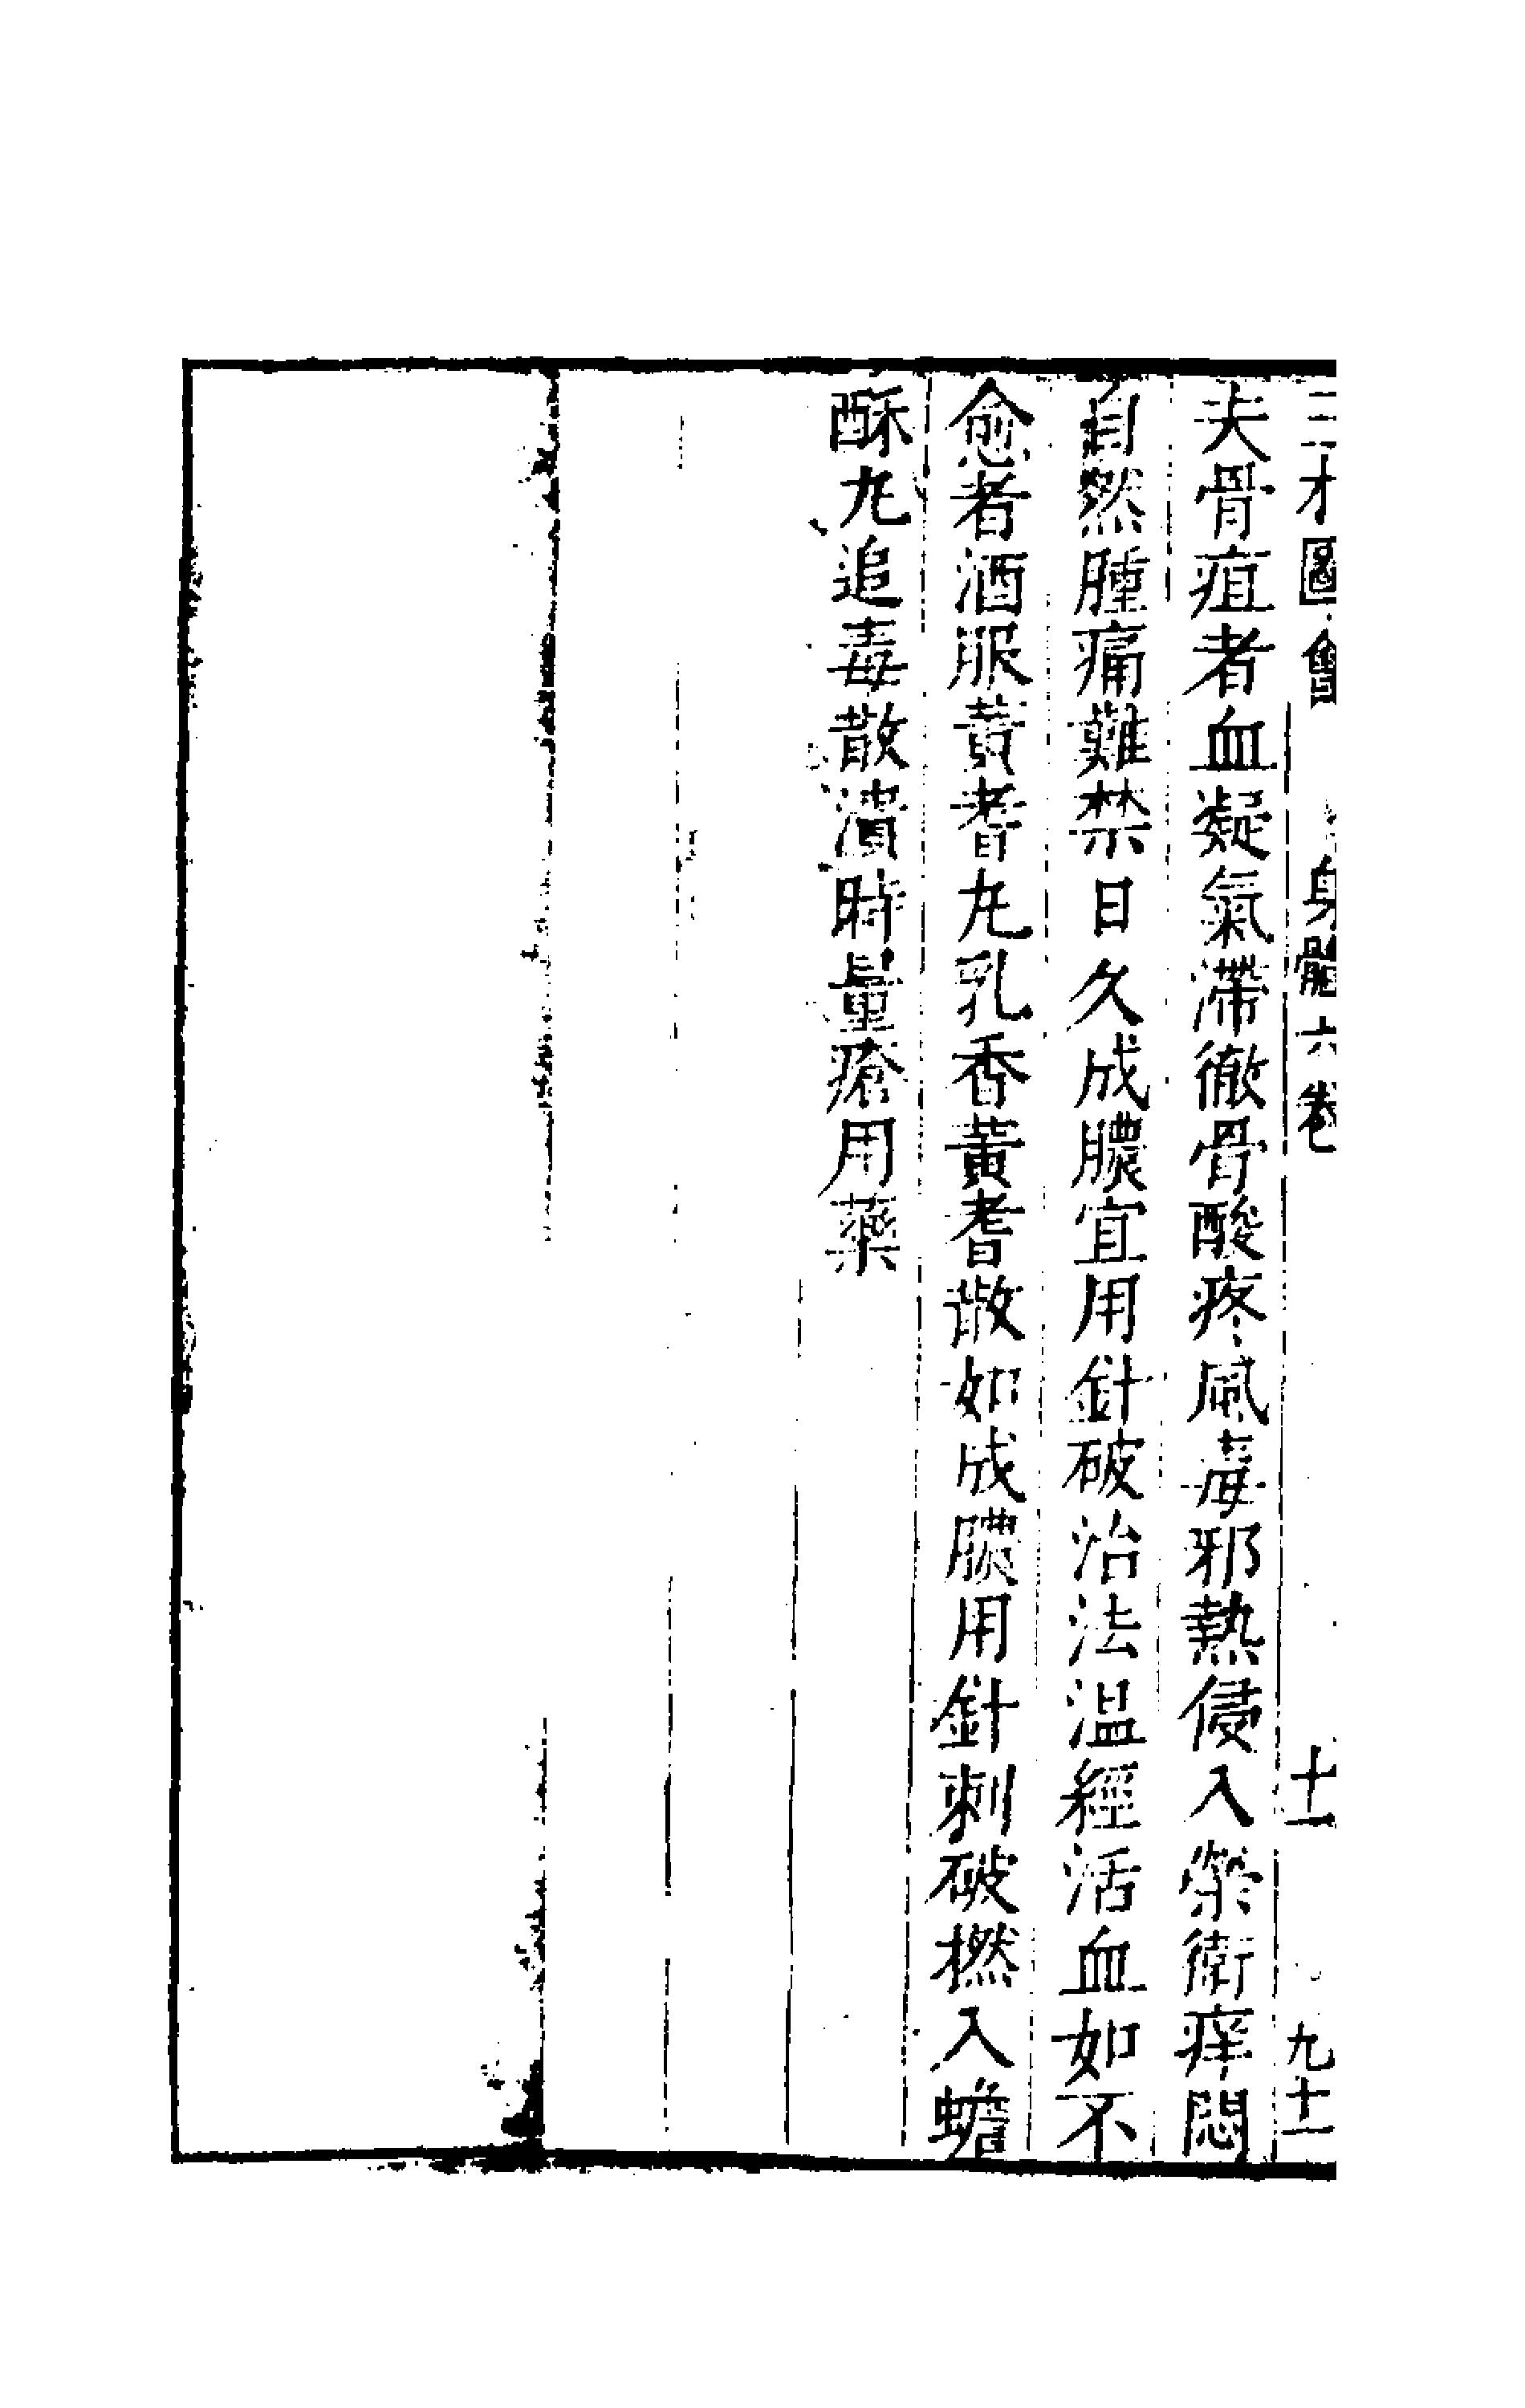 三才圖會 身體六卷 十一 九十一
夫骨疽者血凝氣滯徹骨酸疼風毒邪熱侵入榮衛痒悶
自然腫痛難禁日久成膿宜用針破治法温經活血如不
愈者酒服黄耆丸乳香黄耆散如成膿用針刺破撚入蟾
酥丸追毒散潰時量瘡用藥